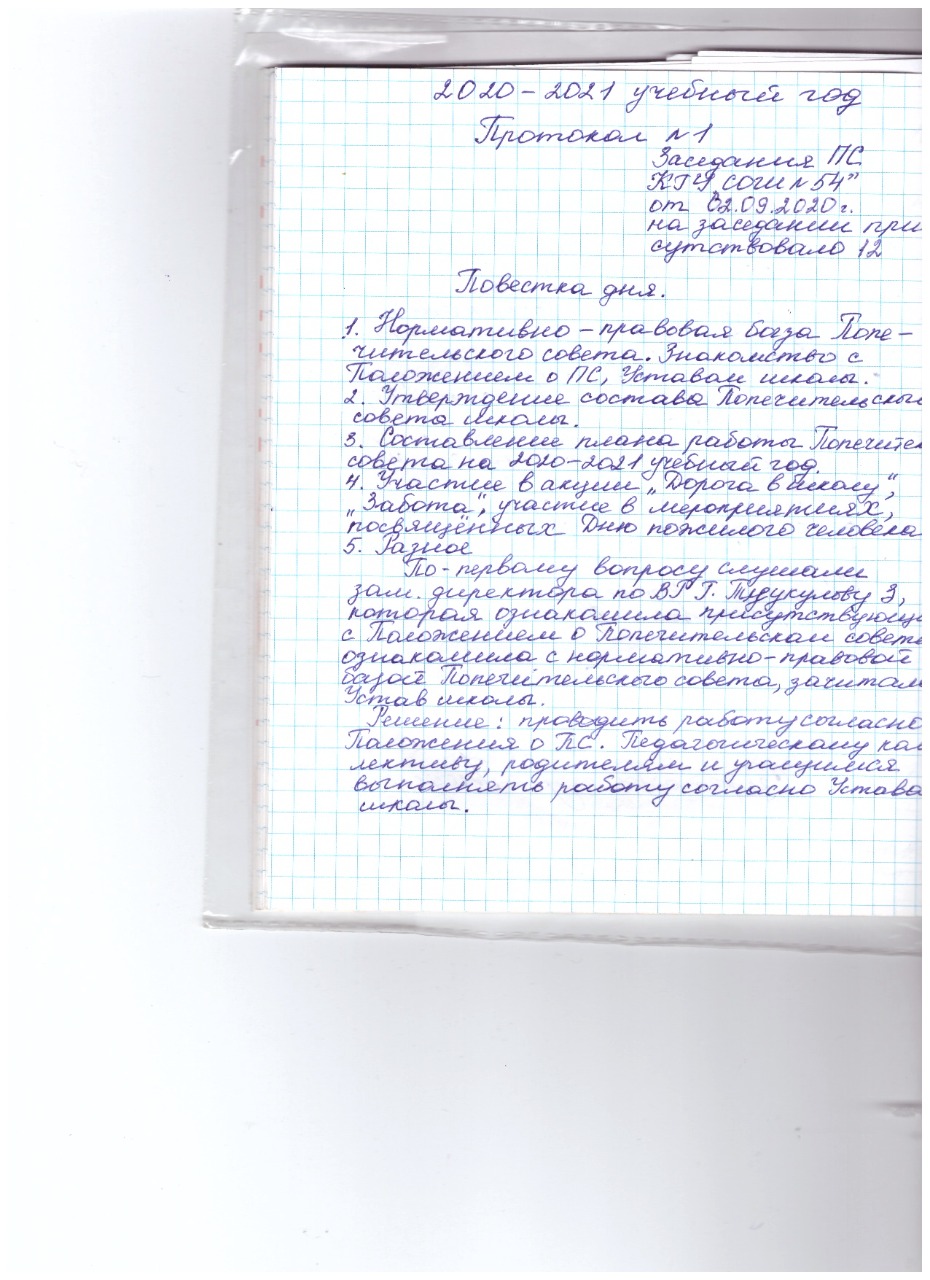 2020-2021 учебный год
Протокол №1
Заседания ПС
КГУ СОШ №54"
от 02.09.2020г.
на заседании при
сутствовало 12
Повестка дня.
1. Нормативно-правовая база Попе-
чительского совета. Знакомство с
Положением о ПС, Уставом школы.
2. Утверждение состава Попечительско
совета школы.
3. Составление плана работы Попечите
совета на 2020-2021 учебный год.
4. Участие в акции „Дорога в школу",
„Забота", участие в мероприятиях,
посвящённых Дню пожилого человека
5. Разное
По-первому вопросу слушали
зам. директора по ВР Г.
которая ознакомила присутствующи
с Положением о Попечительском совете
ознакомила с нормативно-правовой
базой Попечительского совета, зачитала
Устав школы.
Решение: проводить работу согласно
Положения о ПС. Педагогическому кол
лективу, родителям и учащимся
выполнять работу согласно Устава
школы.